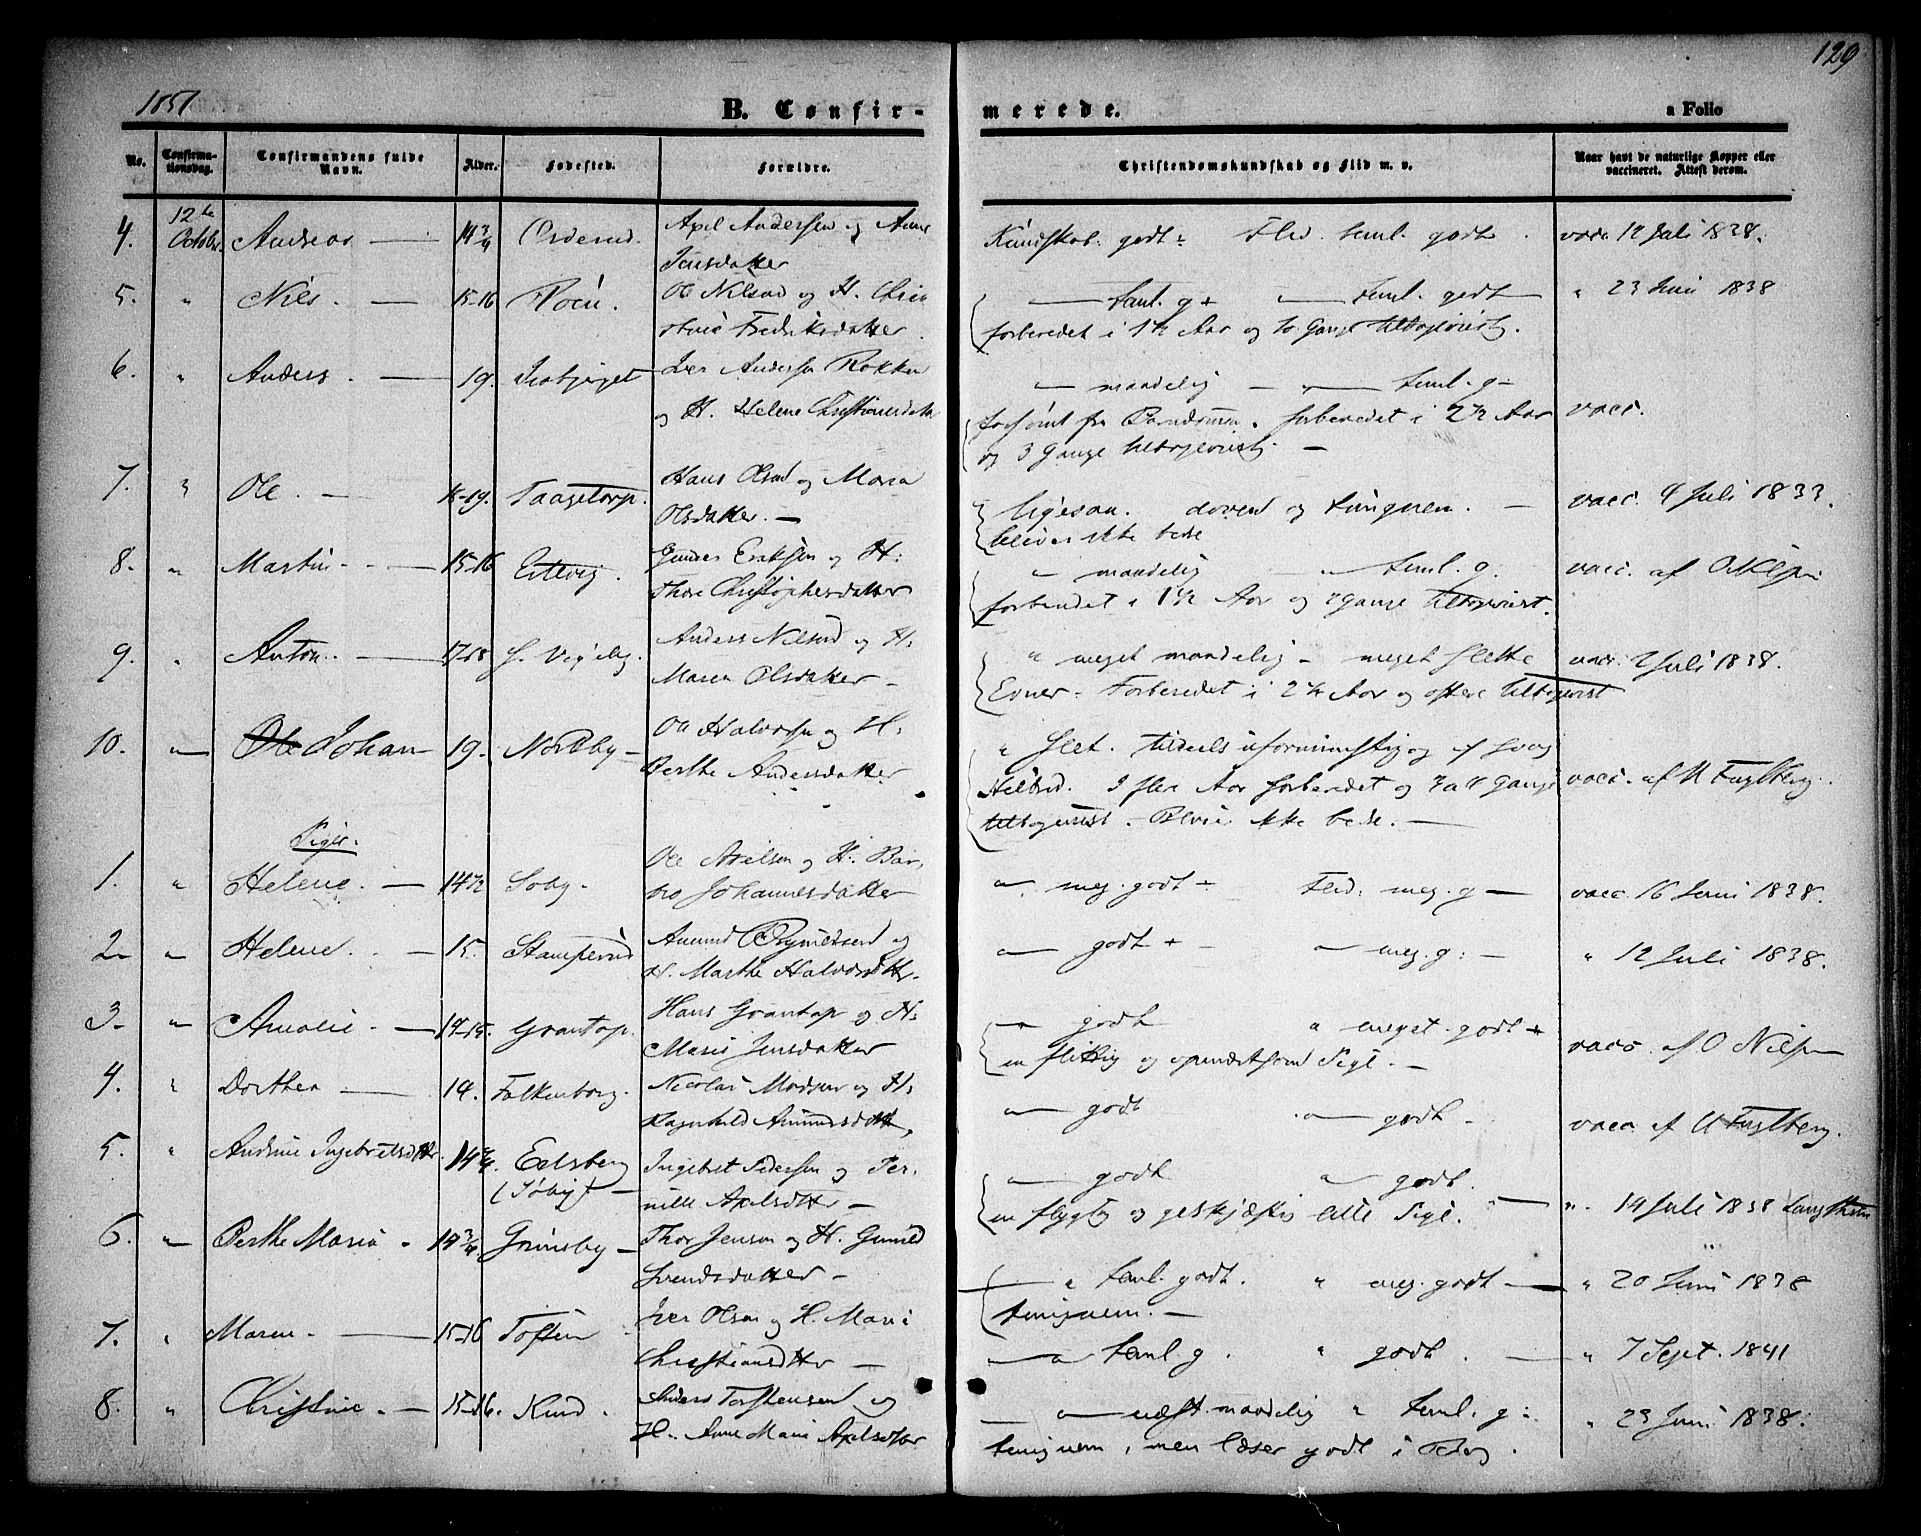 129
1851
B. Confir-
merede.
a Folio
No. Confirma-tionsdag. Confirmandens fulde Navn. Alder. Fødested. Forældre. Christendomskundskab og Flid m. v. Naar havt de naturlige Kopper eller vaccineret. Attest derom.
4. 12te October Andreas 14 3/4 Axel Andersen og Anne Kundskab. godt Flid. teml. godt vacc. 12 Juli 1838.
Jensdatter
5. " Niels. 15-16 Ole Nilsen og H. Chri teml. g + teml. godt " 23 Juni 1838
stine Fredriksdatter. forberedet i 1 1/2 Aar og to Gange tilbageviist.
6. " Anders. 19. Iver Andersen Rokken maadelig teml. g
og H. Helene Christiansdatt forsømt fra Barndommen. forberedet i 2 1/2 Aar vacc.
og 3 Gange tilbageviist
7. " Ole. 18-19. Taagetorp. Hans Olsen og Maria ligesaa. doven og tungnem. vacc. 9 Juli 1833.
Olsdatter. bliver ikke bedre
8. " Martin 15-16 Gunder Eriksen og H. " maadelig teml. g. vacc. af O Nilsen
Thore Christophersdatter forberedet i 1 1/2 Aar og 2 Gange tilbageviist.
9. " Anton. 17-18 Anders Nilsen og H. " meget maadelig meget slette vacc. 2 Juli 1838.
Maren Olsdatter Evner. Forberedet i 2 1/2 Aar og oftere tilbageviist
10. " Johan 19. Nordby Ole Halvorsen og H. " slet. tildeels ufornuftig og af svag
Berthe Andersdatter Helbred. I flere Aar forberedet og 3 a 4 Gange vacc. af U Fuglberg.
tilbageviist. Bliver ikke bedre.
Piger.
1. " Helene. 14 1/2 Soby. Ole Axelsen og H. Bar- meg. godt Flid: meg. g vacc. 16 Juni 1838.
bro Johannesdatter
2. " Helene. 15. Stamperud Amund og godt + meg. g: " 12 Juli 1838.
H. Marthe Halvorsdttr.
3. " Amalie 14-15. Grantop. Hans Grantop og H. godt " meget godt +
Marie Jensdatter en flittig og opmærksom Pige. vacc. af O Nilsen
4. " Dorthea 14. Falkenborg. Nicolai Madsen og H. godt godt
Ragnhild Amundsdttr. vacc af U Fuglberg.
5. " Andrine Ingebretsdttr. 14 3/4 Edsberg Ingebret Pedersen og Per- godt godt.
(Søby) nille Axelsdttr en flygtig og geskjæftig lille Pige. " 14 Juli 1838
6. " Berthe Maria 14 3/4 Grimsby Thor Jensen og H. Gunild
Svendsdatter " teml. godt. " meg. godt " 20 Juni 1838
tungnem.
7. " Maren 15-16 Toften Iver Olsen og H. Mari
Christiansdttr teml. g. " godt. " 7 Sept. 1841
8. " Christine 15-16. Rund. Anders Torstensen og næst. maadelig " teml. g: " 23 Juni 1838.
H. Anne Marie Axelsdttr tungnem, men læser godt i Bog.